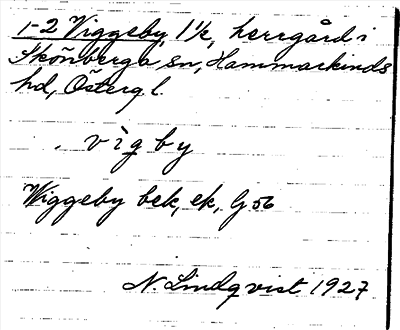 1-2 Viggeby, 1 1/2, herrgård
Skönberga sn, Hammarkinds
hd, Östergl.
vìg by
Wiggeby bek, ek, G 56
N. Lindqvist 1927